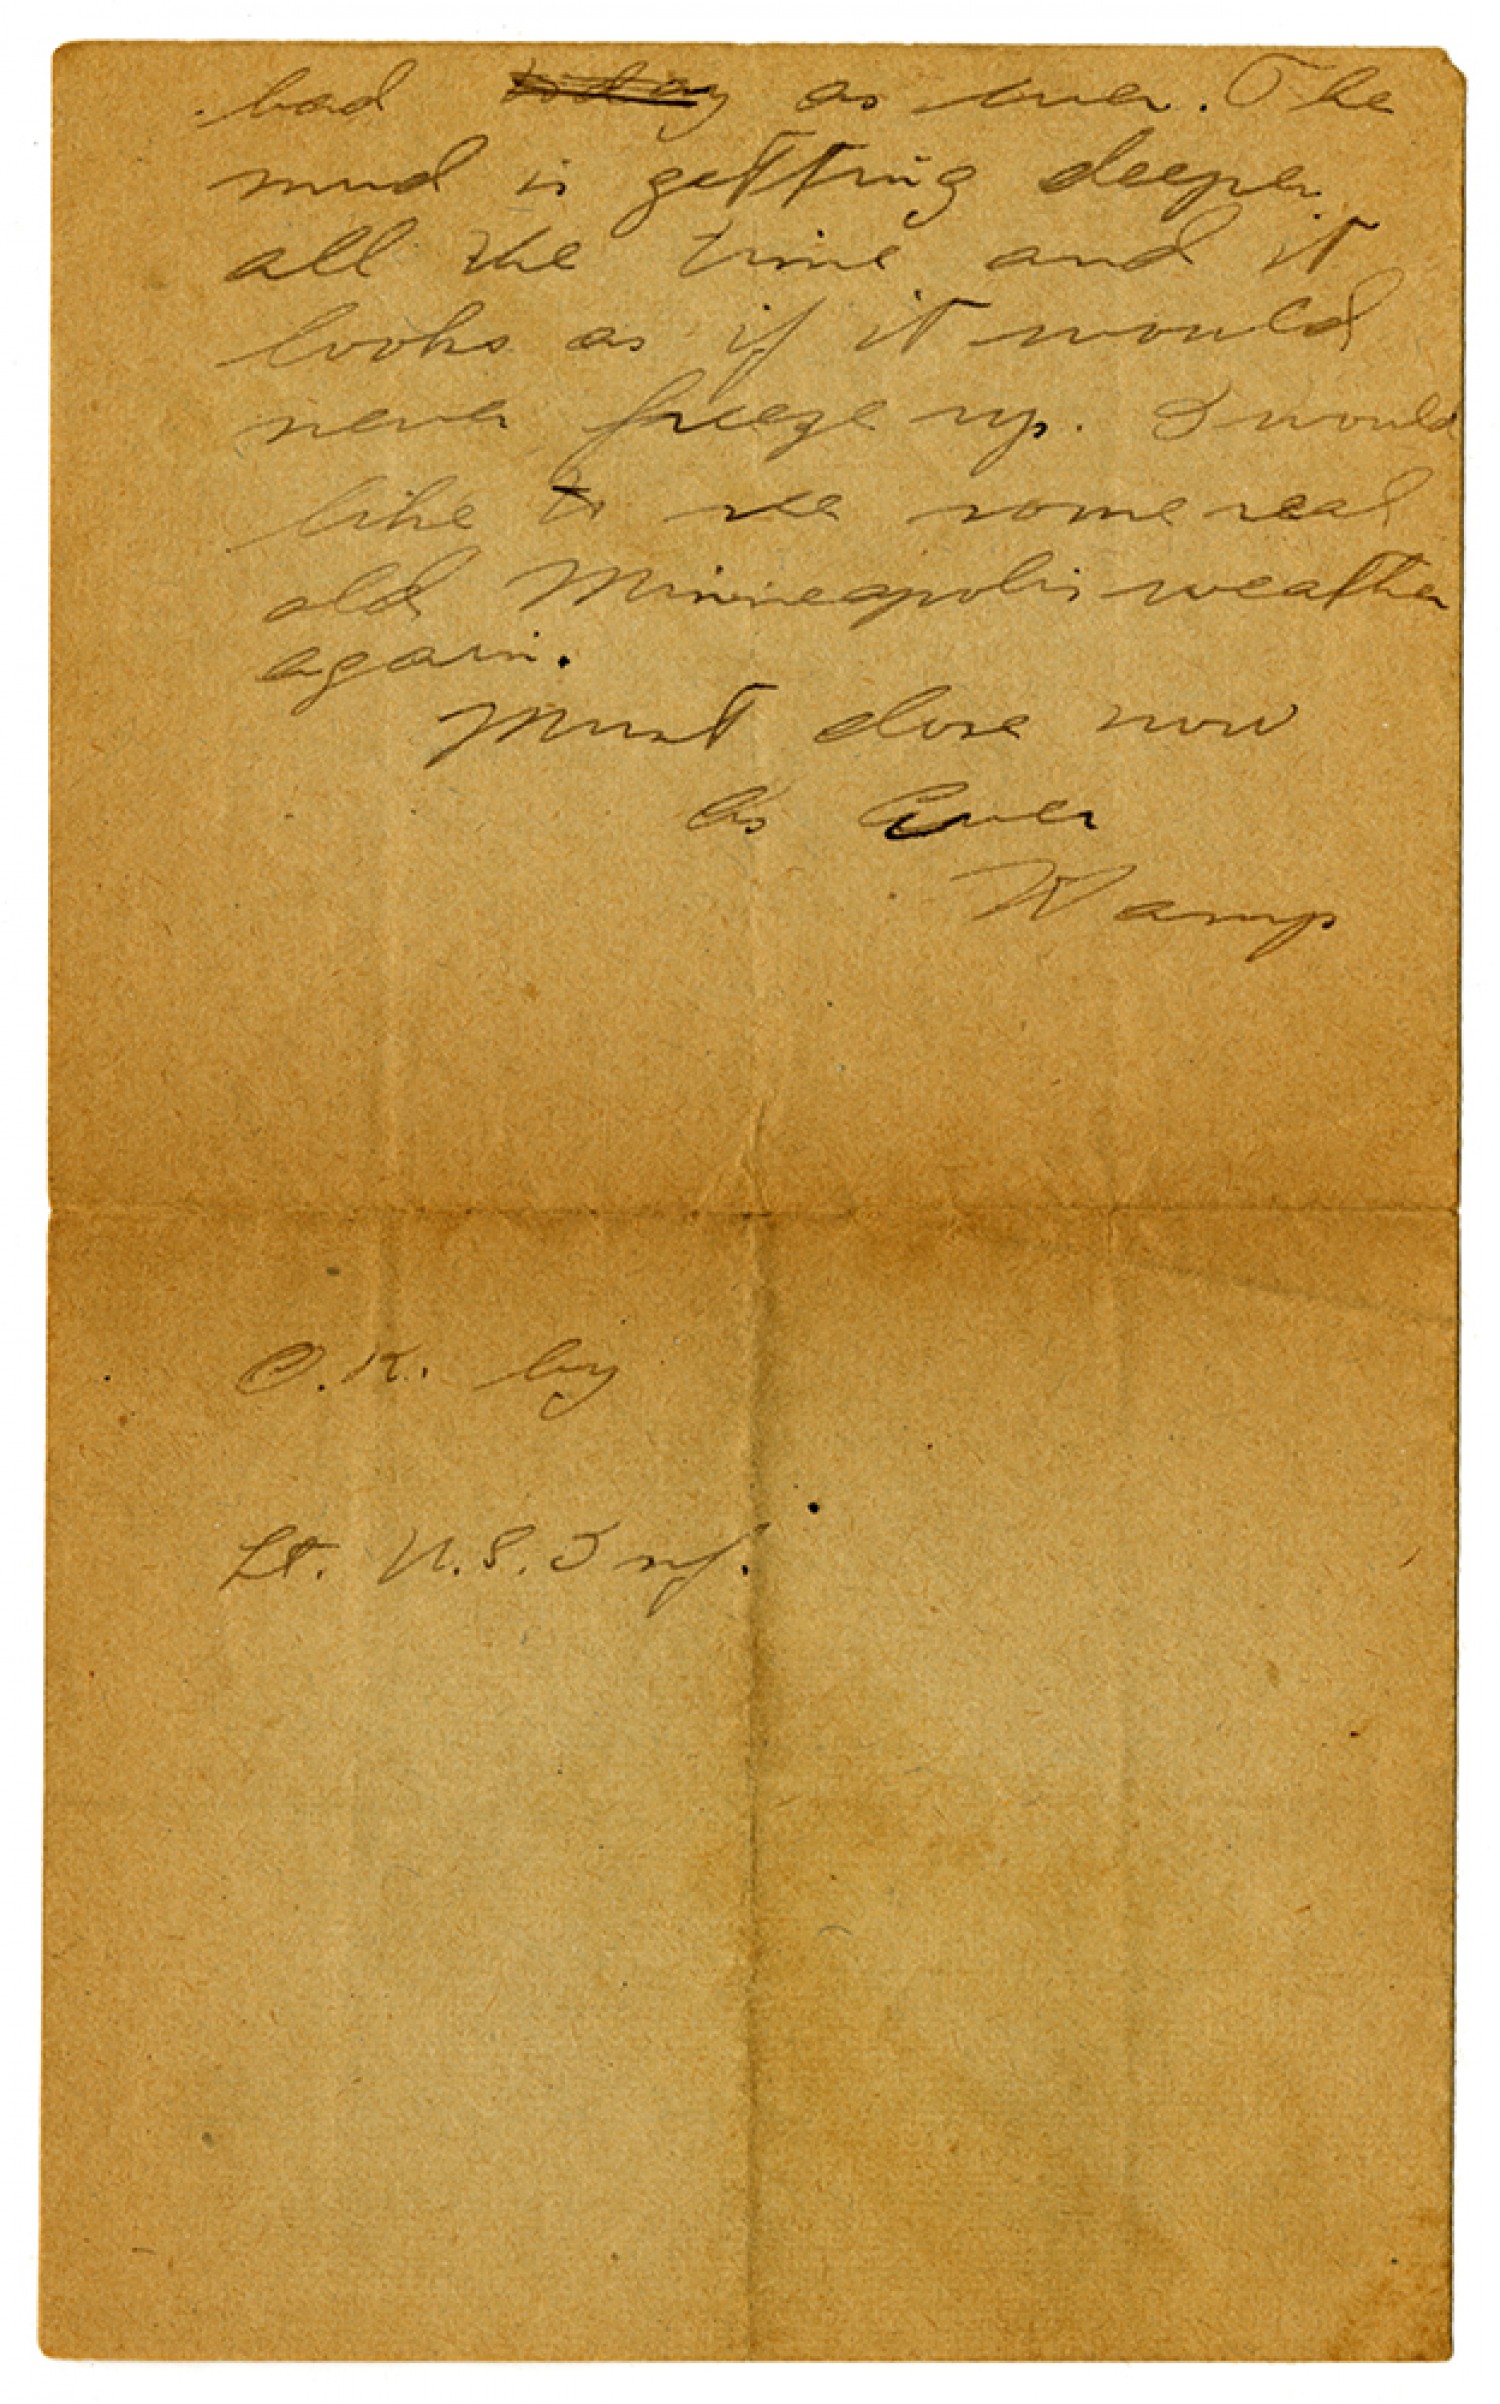 bad today as ever. The
mud is getting deeper
all the time and it
looks as if it would
never freeze up. I would
like to see some real
old Minneapolis weather
again.
Must close now
As Ever
Wamp
O.K. by
Lt. U.S. Inf.